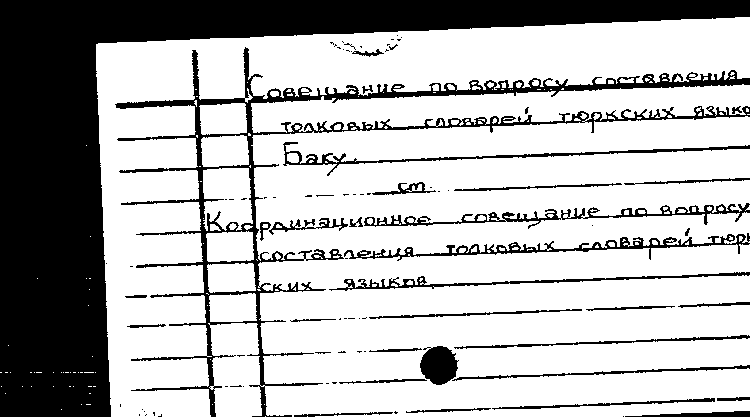 Совещание по вопросу составления
толковых словарей тюркских языко
Баку.
см.
Координационное совещание по вопросу
составления толковых словарей тюрк
ских языков.